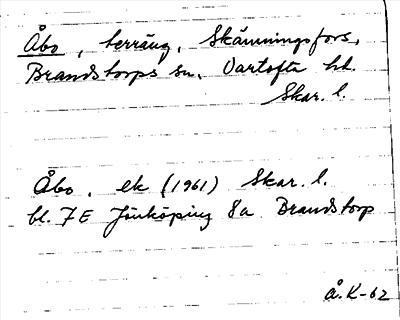 Åbo, terräng, Skämningsfors,
Brandstorps sn. Vartofta hd.
Skar. l.
Åbo, ek (1961) Skar. l.
bl. 7E Jönköping 8a Brandstorp
Å.K-62